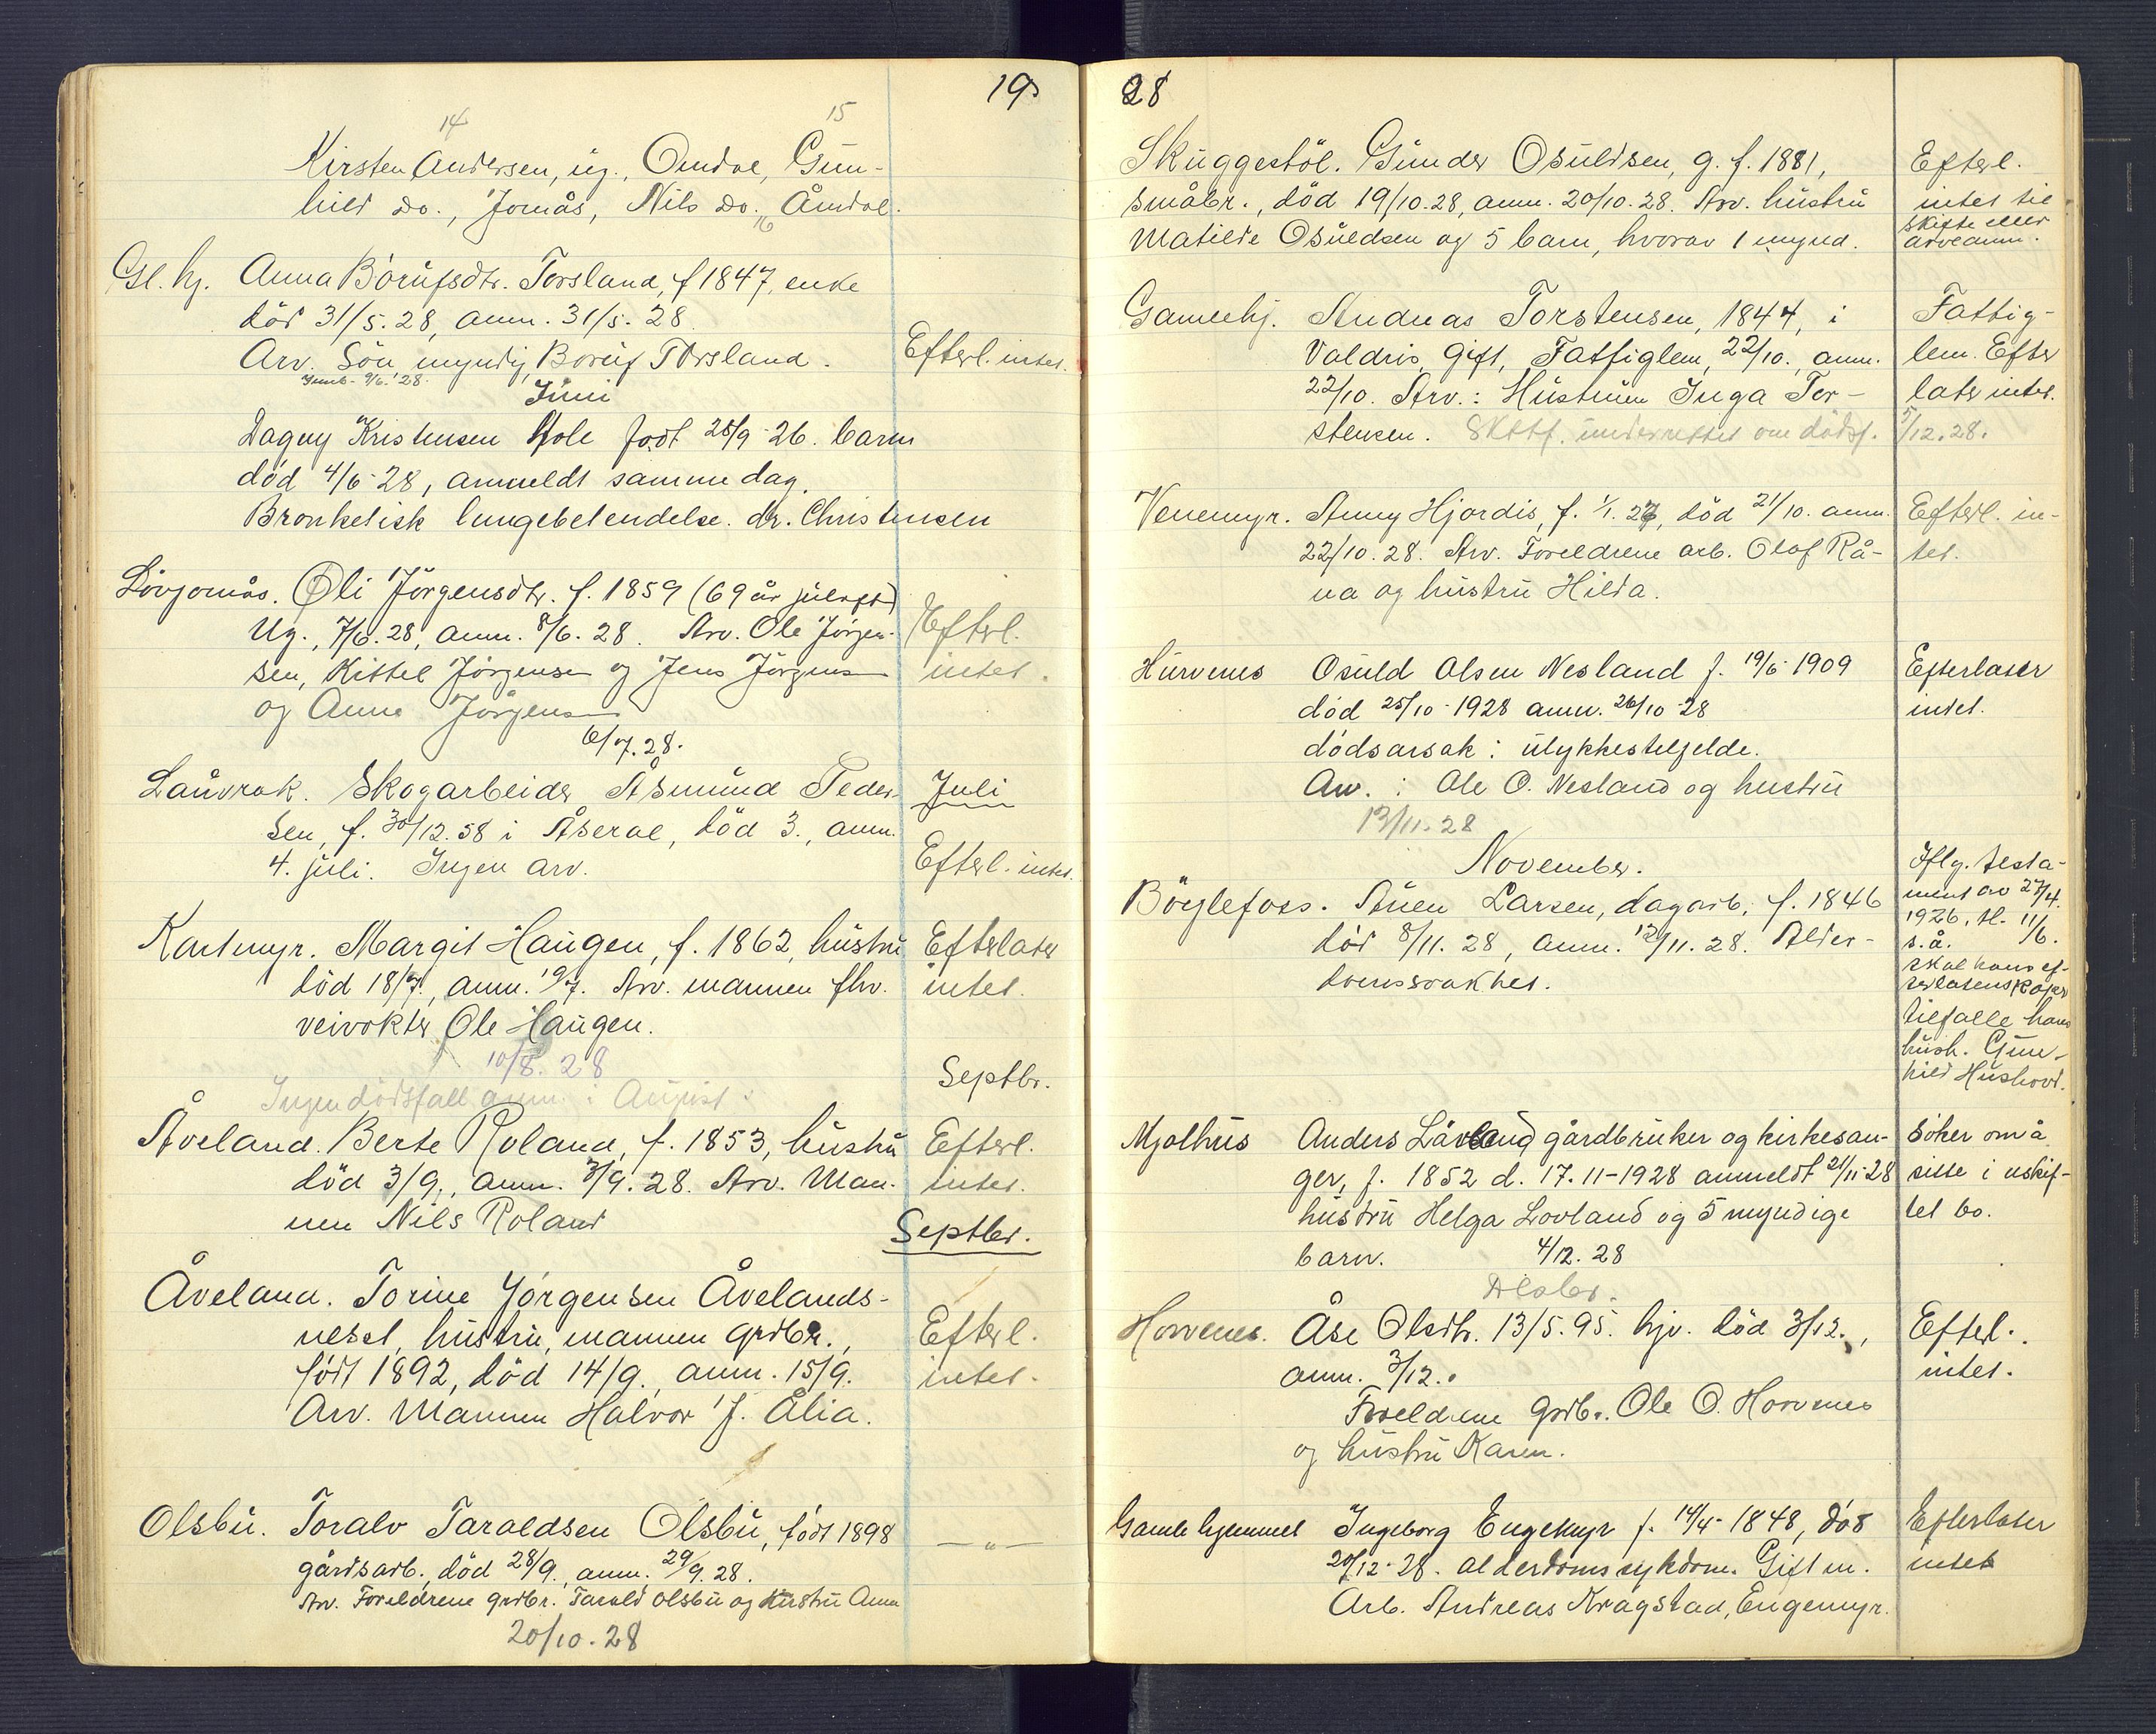 19
14 15
Kirsten Andersen, ug., Omdal, Gun-
hild do., Jomås, Nils do. Åmdal.
16
Gl. hj. Anna Börufsdtr. Torsland, f 1847, enke
död 31/5.28, anm. 31/5. 28
Arv. Sön, myndig, Boruf Torsland. Efterl. intet.
9/6.'28.
Juni
Dagny Kristensen Hole født 28/9-26. barn
død 4/6-28, anmeldt samme dag.
Bronketisk lungebetendelse. dr. Christensen
Lövjomås. Oli Jörgensdtr. f. 1859 (69 år juleaft)
Ug., 7/6.28, anm. 8/6.28. Arv. Ole Jörgen- Efterl.
sen, Kittel Jörgensen og Jens Jörgensen intet.
og Anne Jörgensen
6/7.28.
Lauvrak. Skogarbeider Åsmund Peder- Juli
sen, f. 30/12.58 i Åseral, död 3., anm.
4. juli. Ingen arv. Efterl. intet.
Kartmyr. Margit Haugen, f. 1862, hustru Efterlater
död 18/7, anm. 19/7. Arv. mannen fhv. intet.
veivokter Ole Haugen.
10/8. 28 Septbr.
Ingen dödsfall anm. i August.
Åveland. Berte Roland, f. 1853, hustru Efterl.
död 3/9., anm. 3/9.28. Arv. Man- intet.
nen Nils Roland
Septbr.
Åveland. Torine Jörgensen Åvelands-
neset, hustru, mannen grdbr., Efterl.
födt 1892, död 14/9., anm. 15/9. intet.
Arv. Mannen Halvor J. Ålia.
Olsbu. Toralv Taraldsen Olsbu, födt 1898 — " —
gårdsarb., död 28/9., anm. 29/9.28.
Arv. Foreldrene grdbr. Tarald Olsbu og hustru Anna
20/10.28
28
Skuggestöl. Gunder Osuldsen, g. f. 1881, Efterl.
småbr., död 19/10.28, anm. 20/10.28. Arv. hustru intet til
Matilde Osuldsen og 5 barn, hvorav 1 mynd. skifte eller
arveanm.
Gamlehj. Andreas Torstensen, 1844, i Fattig-
Valdris, Gift, Fattiglem, 22/10., anm. lem. Efter
22/10. Arv.: Hustruen Inga Tor- later intet.
stensen. Skttf. underrettet om dödsf. 5/12.28.
Venemyr. Anny Hjordis, f. 1/1.27, död 21/10. anm. Efterl. in-
22/10.28. Arv. Foreldrene arb. Olof Rå- tet.
na og hustru Hilda.
Hurvenes Osuld Olsen Nesland f. 19/6-1909 Efterlater
død 25/10-1928 anm. 26/10-28 intet.
dødsarsak: ulykkestelfelde.
Arv.: Ole O. Nesland og hustru
13/11.28
November.
Böylefoss. Auen Larsen, dagarb., f. 1846
död 8/11.28, anm. 12/11.28. Alder-
domssvakhet.
Iflg. testa-
ment av 27/4.
1926, tl. 11/6.
s.å.
skal hans ef-
terlatenskaper
tilfalle hans
hush. Gun-
hild Hushovd.
Mjølhus Anders Løvland gårdbruker og kirkesan- Søker om å
ger, f. 1852 d. 17.11-1928 anmeldt 21/11-28 sitte i uskif-
hustru Helga Lovland og 5 myndige tet bo.
barn. 4/12.28
Desbr.
Horvenes. Åse Olsdtr. 13/5.95. hjv. död 3/12., Efterl.
anm. 3/12. intet.
Foreldrene grdbr. Ole O. Horvenes
og hustru Karen.
Gamle hjemmet Ingeborg Engemyr f. 14/4-1848, død Efterlater
20/12-28. alderdomssykdom. Gift m. intet
Arb. Andreas Kragstad, Engemyr.